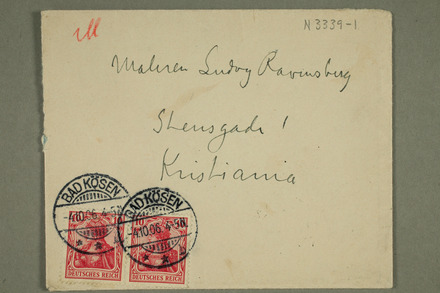 M
N 3339-1
Maleren Ludvig Ravensberg
Stensgade 1
Kristiania
BAD KÖSEN
-4.10.06. 4-5N
BAD KÖSEN
-4.10.06. 4-5N
10
DEUTSCHES REICH
DEUTSCHES REICH